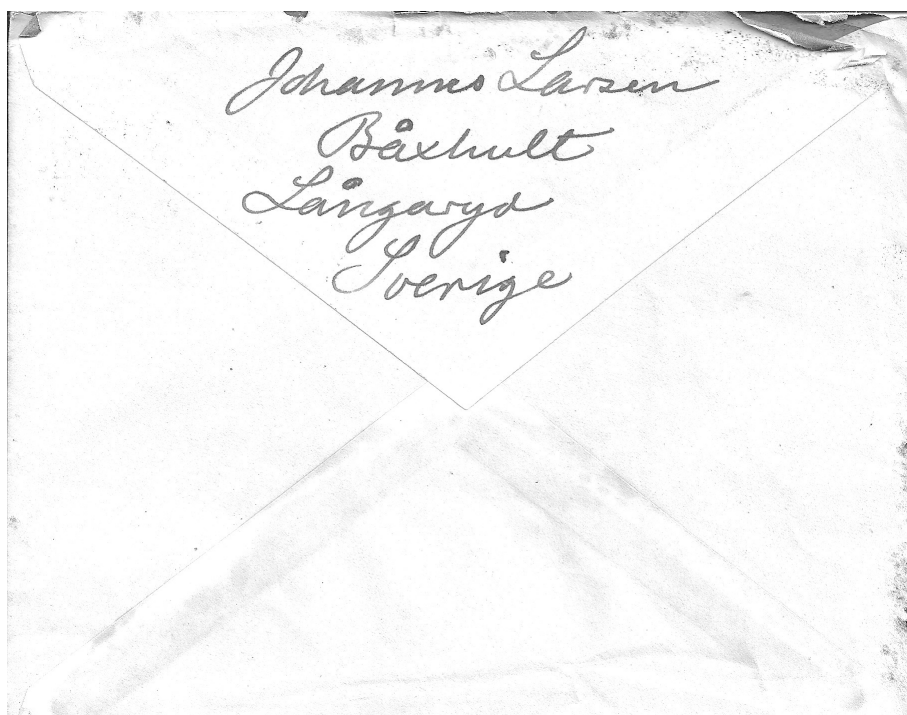 Johannes Larsen
Båxhult
Långaryd
Sverige